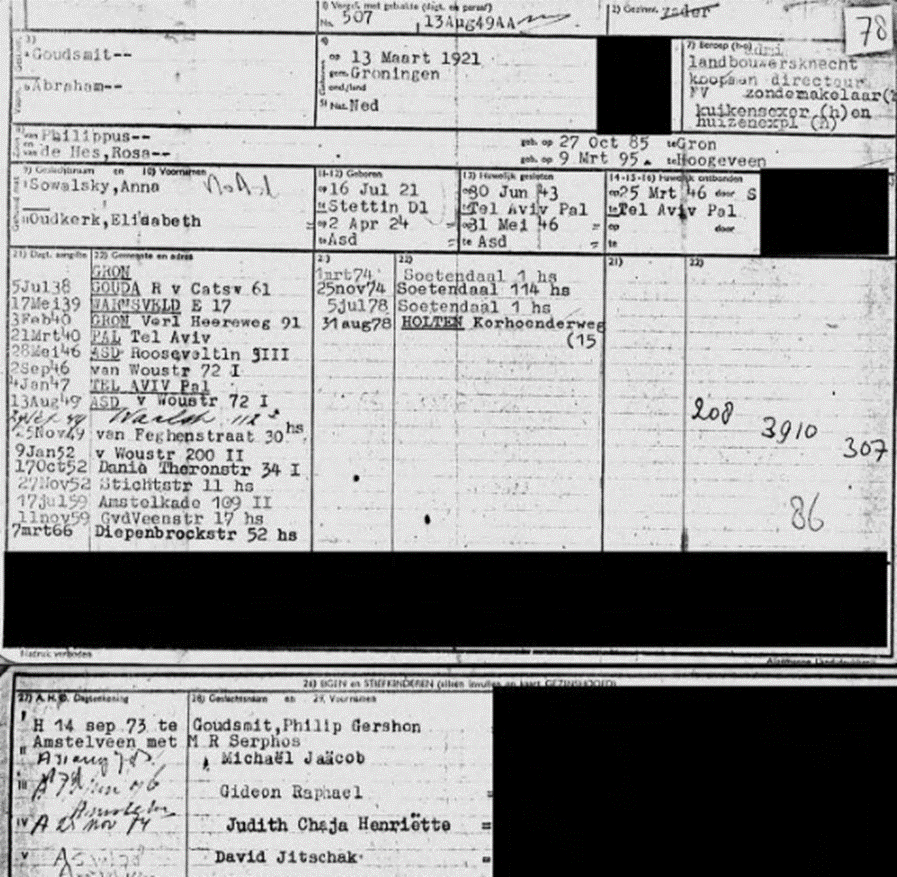 1) Vergel. met gebakte (dagt. en paraaf)
No. 507 , 13Aug49AA
2) Gezinsr. zoder
78
3)
Goudsmit--
Abraham--
4)
op 13 Maart 1921
gem. Groningen
ond/land
5) Nat. Ned
7) Beroep (h-o)
landbouwersknecht
koopman directeur
NV zondemakelaar(h
kuikensexer (h)en
huizenexpl (h)
van Philippus--
en
van de Hes, Rosa--
geb. op 27 Oct 85 te Gron
geb. op 9 Mrt 95 te Hoogeveen
9) Geslachtsnaam en 10) Voornamen
Sowalsky,Anna
Oudkerk,Elisabeth
11-12) Geboren
op 16 Jul 21
te Stettin Dl
op 2 Apr 24 =
te Asd =
13) Huwelijk gesloten
op 30 Jun 43
te Tel Aviv Pal
op 31 Mei 46 =
te Asd =
14-15-16) Huwelijk ontbonden
op 25 Mrt 46 door S
te Tel Aviv Pal
op door
te
21) Dagt. aangifte 22) Gemeente en adres
GRON
5Jul38 GOUDA R v Catsw 61
17Mei39 WARNSVELD E 17
3Feb40 GRON Verl Heereweg 91
21Mrt40 PAL Tel Aviv
28Mei46 ASD Rooseveltln 3III
2Sep46 van Woustr 72 I
4Jan47 TEL AVIV Pal
13Aug49 ASD v Woustr 72 I
112
25Nov49 van Feghenstraat 30 hs
9Jan52 v Woustr 200 II
17Oct52 Danie Theronstr 34 I
27Nov52 Stichtstr 11 hs
17jul59 Amstelkade 109 II
11nov59 GvdVeenstr 17 hs
7mrt66 Diepenbrockstr 52 hs
22)
1mrt74 Soetendaal 1 hs
25nov74 Soetendaal 114 hs
5jul78 Soetendaal 1 hs
31aug78 HOLTEN Korhoenderweg
(15
21) 22)
208
3910
307
86
Nadruk verboden
26) EIGEN en STIEFKINDEREN (alleen invullen op kaart GEZINSHOOFD)
27) A.H.O. Dagtekening
28) Geslachtsnaam en 29) Voornamen
I H 14 sep 73 te Goudsmit,Philip Gershon
Amstelveen met M R Serphos
II A 31 aug 78 Michaël Jaäcob
III A Gideon Raphael =
IV A nov 74 Judith Chaja Henriëtte =
V A David Jitschak =